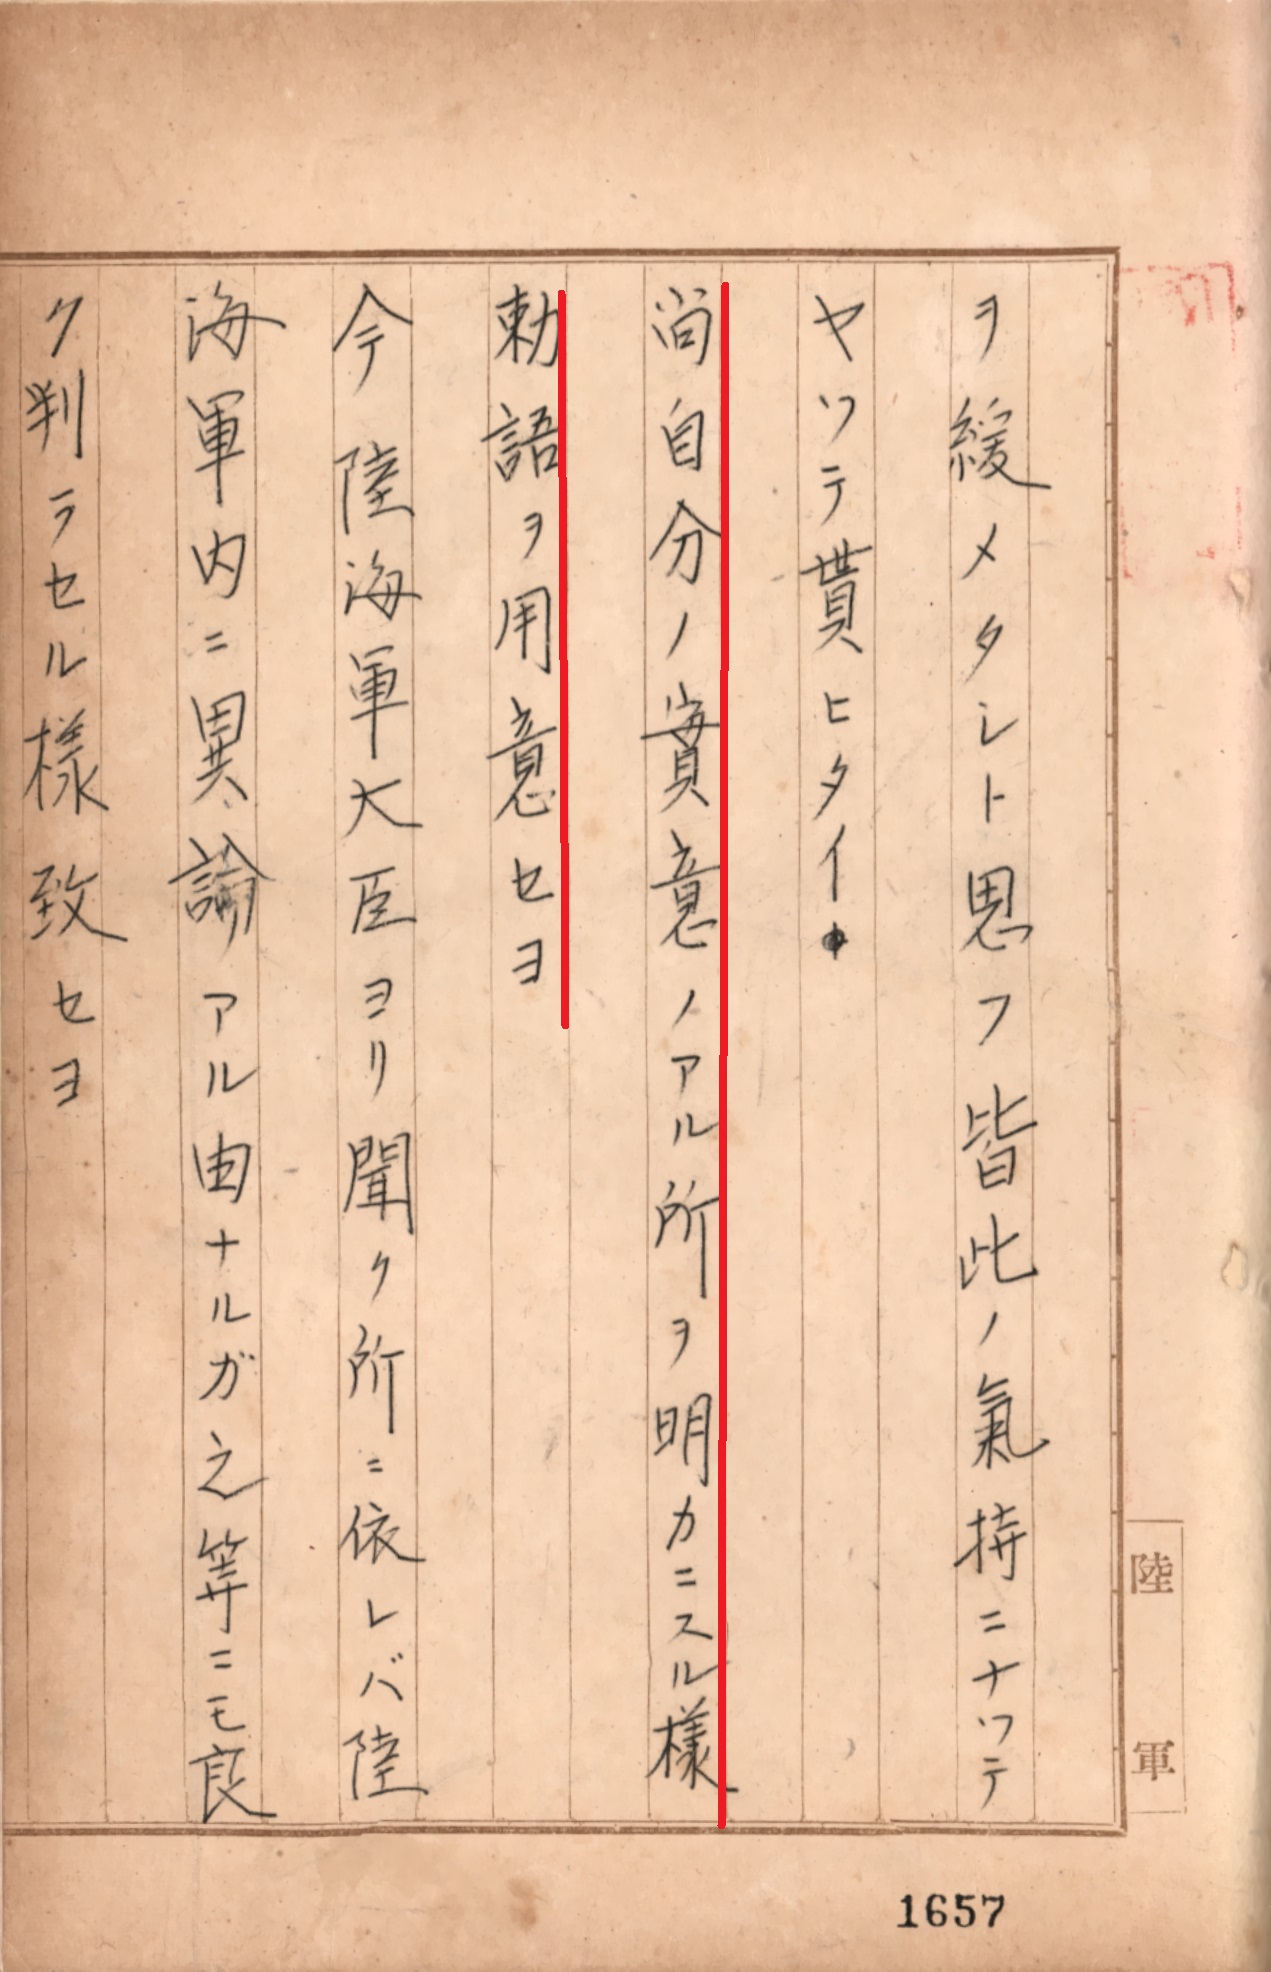 ヲ緩メタシト思フ皆此ノ氣持ニナツテ
ヤツテ貰ヒタイ。
尚自分ノ實意ノアル所ヲ明カニスル樣
勅語ヲ用意セヨ
今陸海軍大臣ヨリ聞ク所ニ依レバ陸
海軍内ニ異論アル由ナルガ之等ニモ良
ク判ラセル樣致セヨ
陸軍
1657